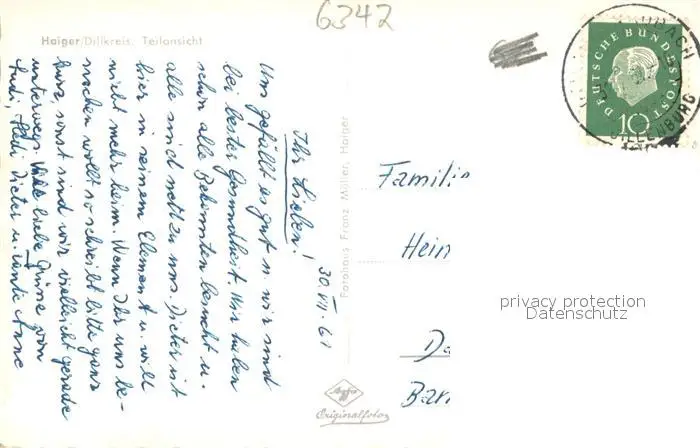 6342
Haiger/Dillkreis. Teilansicht
DEUTSCHE BUNDESPOST
10
DILLENBURG
30. VII. 61
Ihr Lieben!
Uns gefällt es gut u. wir sind
bei bester Gesundheit. Wir haben
schon alle Bekannten besucht u.
alle sind nett zu uns. Dieter ist
hier in seinem Element u. will
nicht mehr heim. Wenn Ihr uns be-
suchen wollt so schreibt bitte ganz
kurz, sonst sind wir vielleicht gerade
unterwegs. Viele liebe Grüße von
Rudi, Hedi Dieter u. Tante Anne
Fotohaus Franz Müller, Haiger
Agfa
Originalfoto
Familie
Hein
Da
Bar
privacy protection
Datenschutz